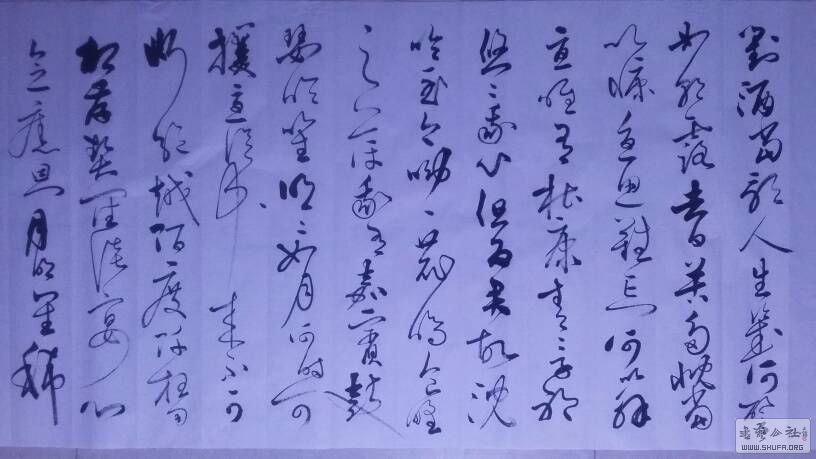 對酒當歌人生幾何譬
如朝露去日苦多慨當
以慷憂思難忘何以解
憂唯有杜康青々子衿
悠々我心但為君故沈
吟至今呦々鹿鳴食野
之苹我有嘉賓鼓
瑟吹笙明々如月何時可
掇憂從中來不可
斷絕越陌度阡枉用
相存契闊談宴心
念舊恩月明星稀
书艺公社
WWW.SHUFA.ORG